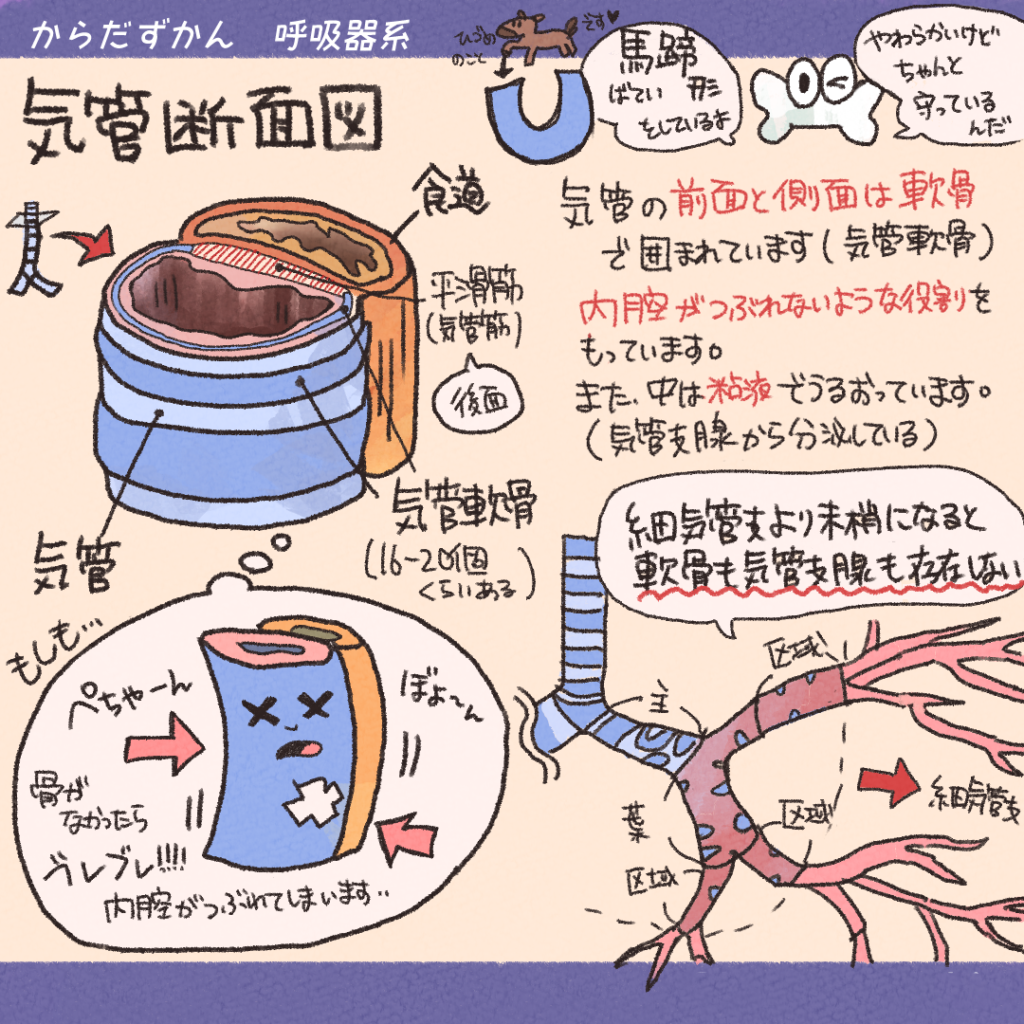 からだずかん 呼吸器系
気管断面図
ひづめ
のこと
です♥
馬蹄
ばてい 形
をしているよ
やわらかいけど
ちゃんと
守っている
んだ
食道
平滑筋
(気管筋)
後面
気管軟骨
(16~20個
くらいある)
気管
気管の前面と側面は軟骨
で囲まれています(気管軟骨)
内腔がつぶれないような役割を
もっています。
また、中は粘液でうるおっています。
(気管支腺から分泌している)
細気管支より末梢になると
軟骨も気管支腺も存在しない
もしも…
ぺちゃーん
ぼよ〜ん
骨が
なかったら
ブレブレ!!!!
内腔がつぶれてしまいます‥
主
区域
葉
区域
区域
細気管支